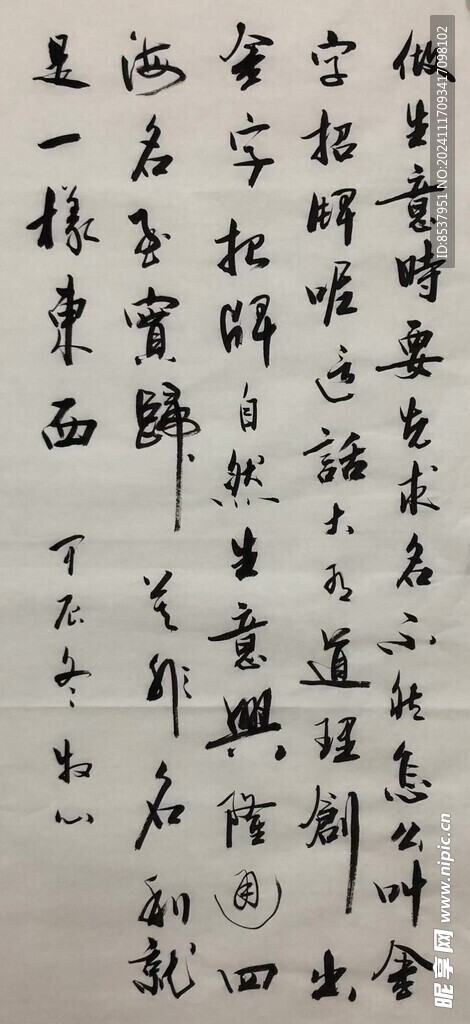 做生意時要先求名不然怎么叫金
字招牌呢這話大有道理創出
金字招牌自然生意興隆通四
海名至實歸莫非名利就
是一樣東西 甲辰冬牧心
ID:8537951 NO:20241117093417098102
昵享网 www.nipic.cn